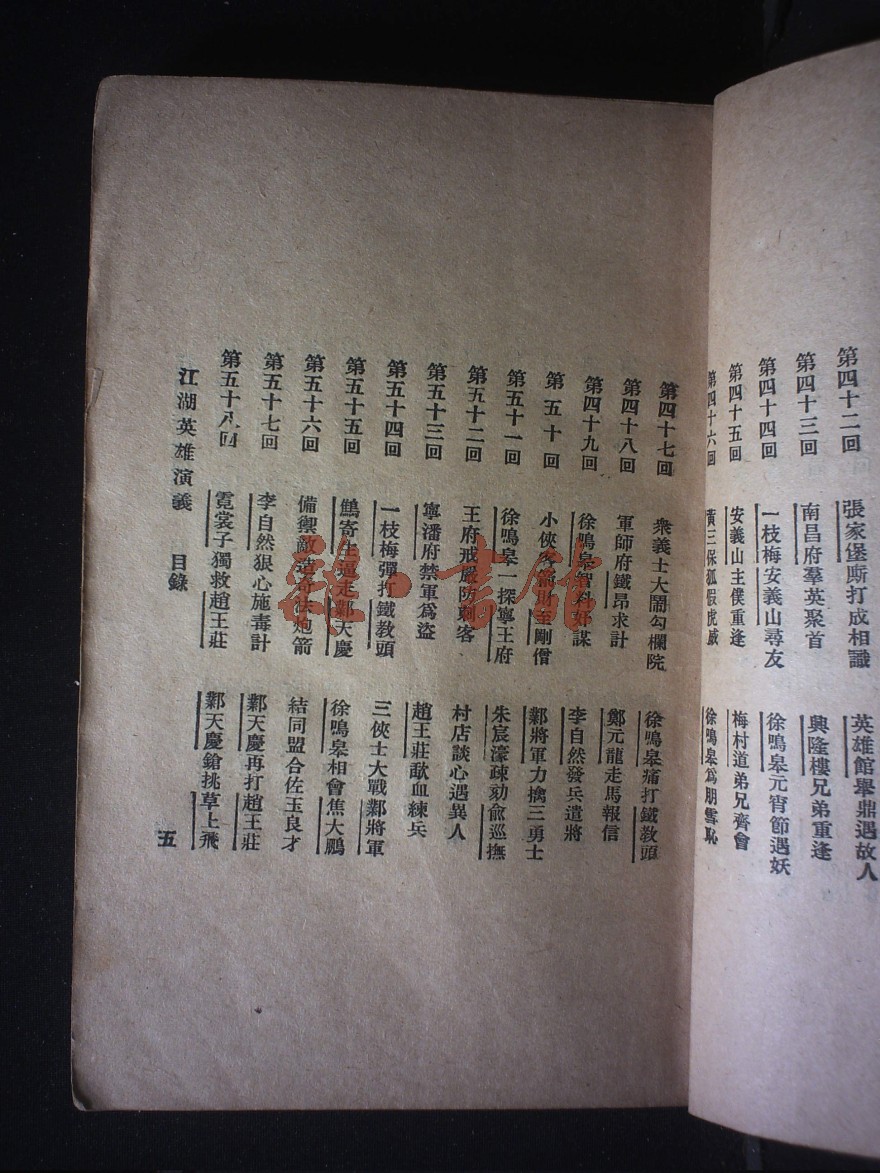 第四十二回 張家堡廝打成相識 英雄館舉鼎遇故人
第四十三回 南昌府羣英聚首 興隆樓兄弟重逢
第四十四回 一枝梅安義山尋友 徐鳴皋元宵節遇妖
第四十五回 安義山主僕重逢 梅村道弟兄齊會
第四十六回 黃三保狐假虎威 徐鳴皋爲朋雪恥
第四十七回 衆義士大鬧勾欄院 徐鳴皋痛打鐵教頭
第四十八回 軍師府鐵昂求計 鄭元龍走馬報信
第四十九回 徐鳴皋智料奸謀 李自然發兵遣將
第五十回 小俠客箭射至剛僧 鄴將軍力擒三勇士
第五十一回 徐鳴皋一探寧王府 朱宸濠疎劾俞巡撫
第五十二回 王府戒嚴防刺客 村店談心遇異人
第五十三回 寧潘府禁軍爲盜 趙王莊歃血練兵
第五十四回 一枝梅彈打鐵教頭 三俠士大戰鄴將軍
第五十五回 鷦寄生逼走鄴天慶 徐鳴皋相會焦大鵬
第五十六回 備禦敵造奇法炮箭 結同盟合佐玉良才
第五十七回 李自然狠心施毒計 鄴天慶再打趙王莊
第五十八回 霓裳子獨救趙王莊 鄴天慶鎗挑草上飛
江湖英雄演義 目錄 五